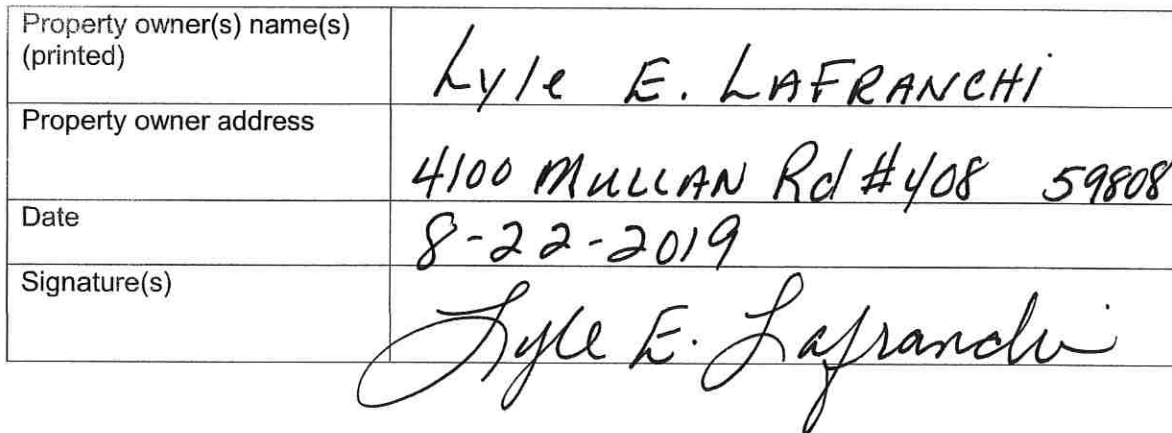 Property owner(s) name(s)
(printed)
Lyle E. LAFRANCHi
Property owner address
4100 MULLAN Rd #408 59808
Date
8-22-2019
Signature(s)
Lyle E. Lafranchi